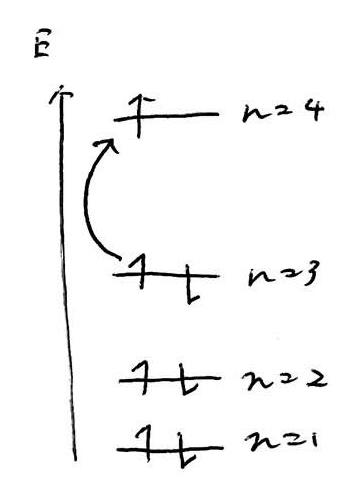 E
n=4
n=3
n=2
n=1